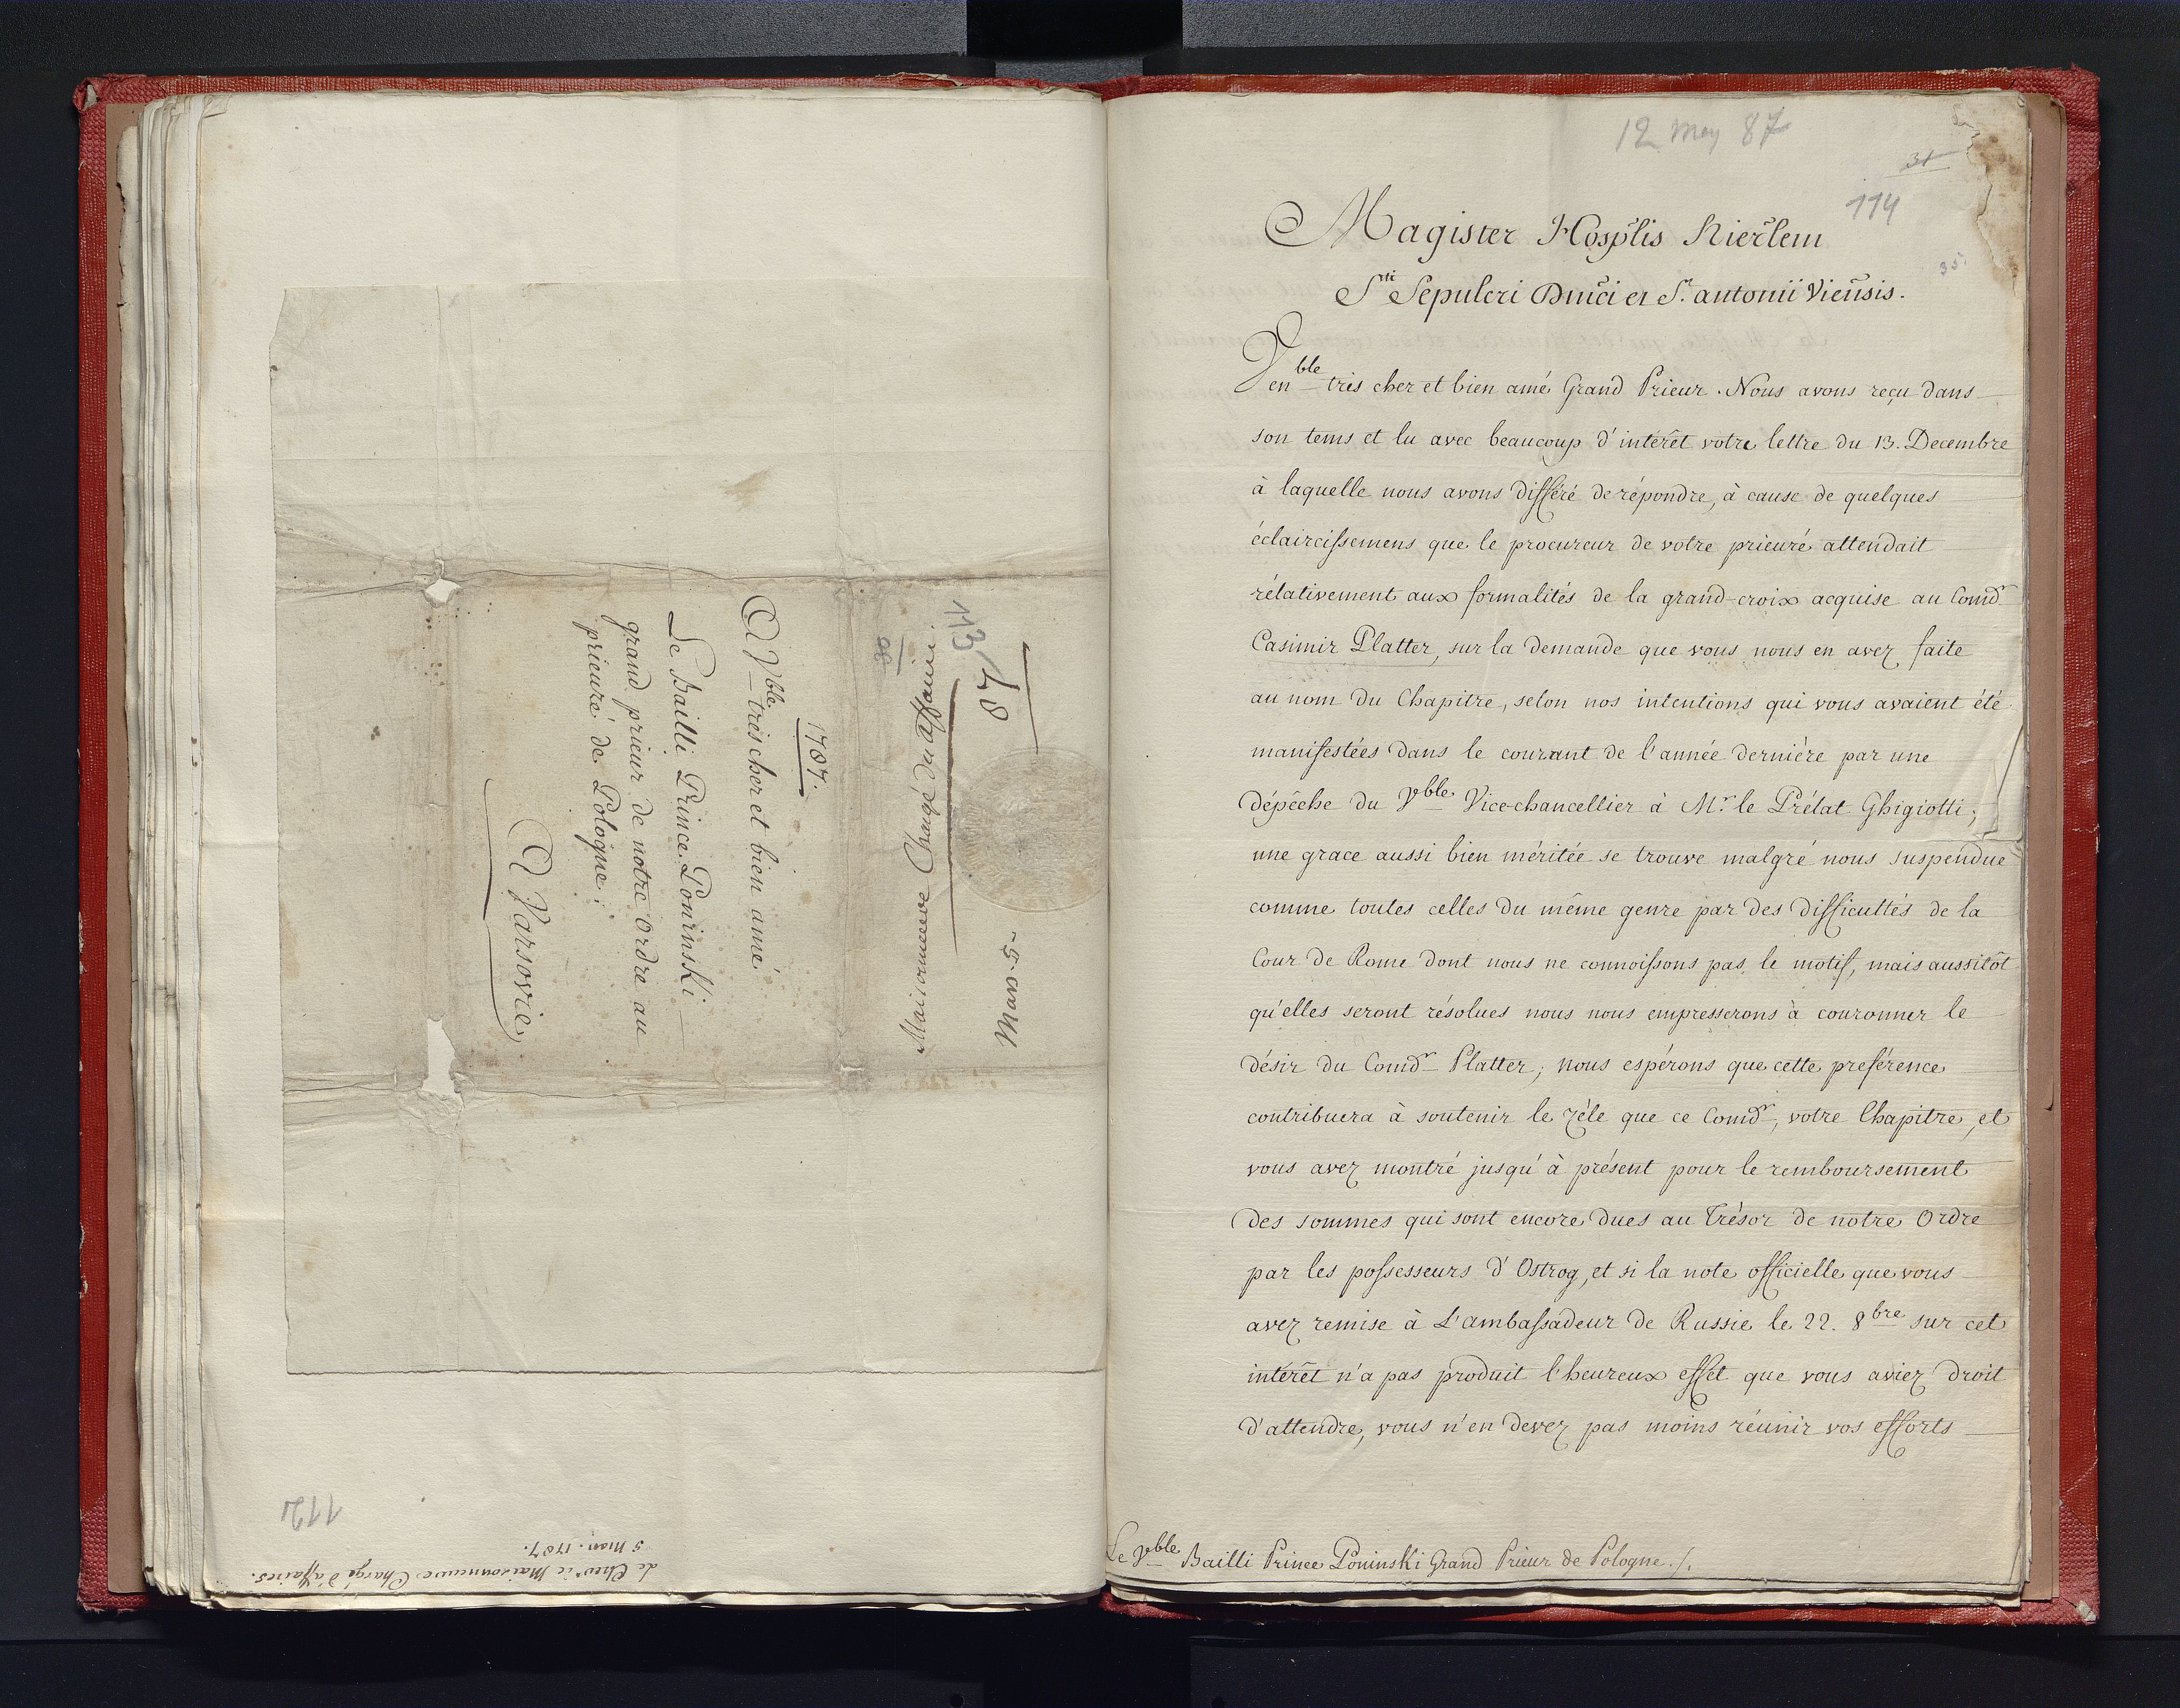 87
Mars. 5
113
Maisonneuve Chargé des affaires.
30
1787.
A Vble très cher et bien amé
Le Bailli Prince Poninski
grand prieur de notre Ordre au
prieuré de Pologne.
A Varsovie
112
de Chevr de Maisonneuve Chargé d'affaires.
5 Mars. 1787.
12 May 87
31
114
35
Magister Hosplis Hierlem
Sti Sepulcri Dnici et St. antonii Vieñsis.
Venble très cher et bien amé Grand Prieur. Nous avons reçu dans
son tems et lu avec beaucoup d'intérêt votre lettre du 13. Decembre
à laquelle nous avons différé de répondre, à cause de quelques
éclaircissemens que le procureur de votre prieuré attendait
rélativement aux formalités de la grand-croix acquise au Comdr
Casimir Platter, sur la demande que vous nous en avez faite
au nom du Chapitre, selon nos intentions qui vous avaient été
manifestées dans le courant de l'année derniére par une
dépêche du Vble Vice-chancellier à Mr. le Prélat Ghigiotti;
une grace aussi bien méritée se trouve malgré nous suspendue
comme toutes celles du même genre par des difficultés de la
Cour de Rome dont nous ne connoissons pas le motif, mais aussitôt
qu'elles seront résolues nous nous empresserons à couronner le
désir du Comdr Platter; nous espérons que cette preférence
contribuera à soutenir le zéle que ce Comdr, votre Chapitre, et
vous avez montré jusqu'à présent pour le remboursement
des sommes qui sont encore dues au Trésor de notre Ordre
par les possesseurs d'Ostrog, et si la note officielle que vous
avez remise à L'ambassadeur de Russie le 22. 8bre sur cet
intérêt n'a pas produit l'heureux effet que vous aviez droit
d'attendre, vous n'en devez pas moins réunir vos efforts
Le Vble Bailli Prince Poninski Grand Prieur de Pologne./.